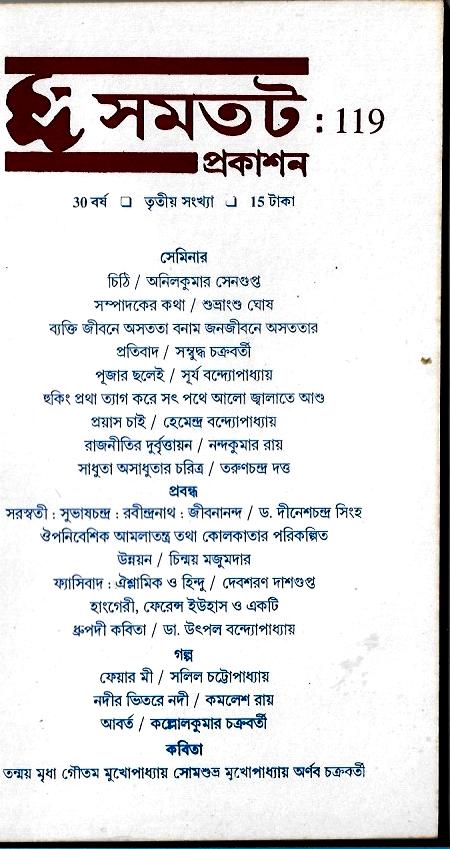 সমতট : 119
প্রকাশন
30 বর্ষ ❑ তৃতীয় সংখ্যা ❑ 15 টাকা
সেমিনার
চিঠি / অনিলকুমার সেনগুপ্ত
সম্পাদকের কথা / শুভ্রাংশু ঘোষ
ব্যক্তি জীবনে অসততা বনাম জনজীবনে অসততার
প্রতিবাদ / সম্বুদ্ধ চক্রবর্তী
পূজার ছলেই / সূর্য বন্দ্যোপাধ্যায়
হুকিং প্রথা ত্যাগ করে সৎ পথে আলো জ্বালাতে আশু
প্রয়াস চাই / হেমেন্দ্র বন্দ্যোপাধ্যায়
রাজনীতির দুর্বৃত্তায়ন / নন্দকুমার রায়
সাধুতা অসাধুতার চরিত্র / তরুণচন্দ্র দত্ত
প্রবন্ধ
সরস্বতী : সুভাষচন্দ্র : রবীন্দ্রনাথ : জীবনানন্দ / ড. দীনেশচন্দ্র সিংহ
ঔপনিবেশিক আমলাতন্ত্র তথা কোলকাতার পরিকল্পিত
উন্নয়ন / চিন্ময় মজুমদার
ফ্যাসিবাদ : ঐশ্লামিক ও হিন্দু / দেবশরণ দাশগুপ্ত
হাংগেরী, ফেরেন্স ইউহাস ও একটি
ধ্রুপদী কবিতা / ডা. উৎপল বন্দ্যোপাধ্যায়
গল্প
ফেয়ার মী / সলিল চট্টোপাধ্যায়
নদীর ভিতরে নদী / কমলেশ রায়
আবর্ত / কল্লোলকুমার চক্রবর্তী
কবিতা
তন্ময় মৃধা গৌতম মুখোপাধ্যায় সোমশুভ্র মুখোপাধ্যায় অর্ণব চক্রবর্তী